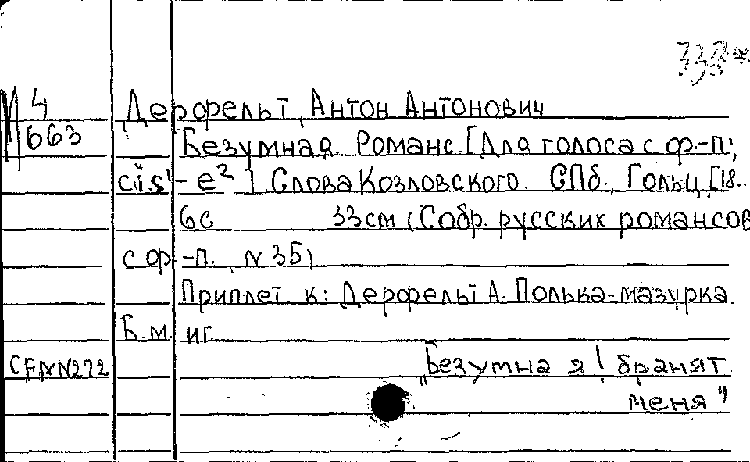 338*
М 4
663
Дерфельт, Антон Антонович
Безумная. Романс. [Для голоса с ф.-п.;
cis¹ - e²] Слова Козловского. СПб., Гольц, [18..
6с 33см (Собр. русских романсов
с ф.-п., N 35)
Приплет. к: Дерфельт А. Полька-мазурка.
Б.м. и г.
"Безумна я! бранят
меня"